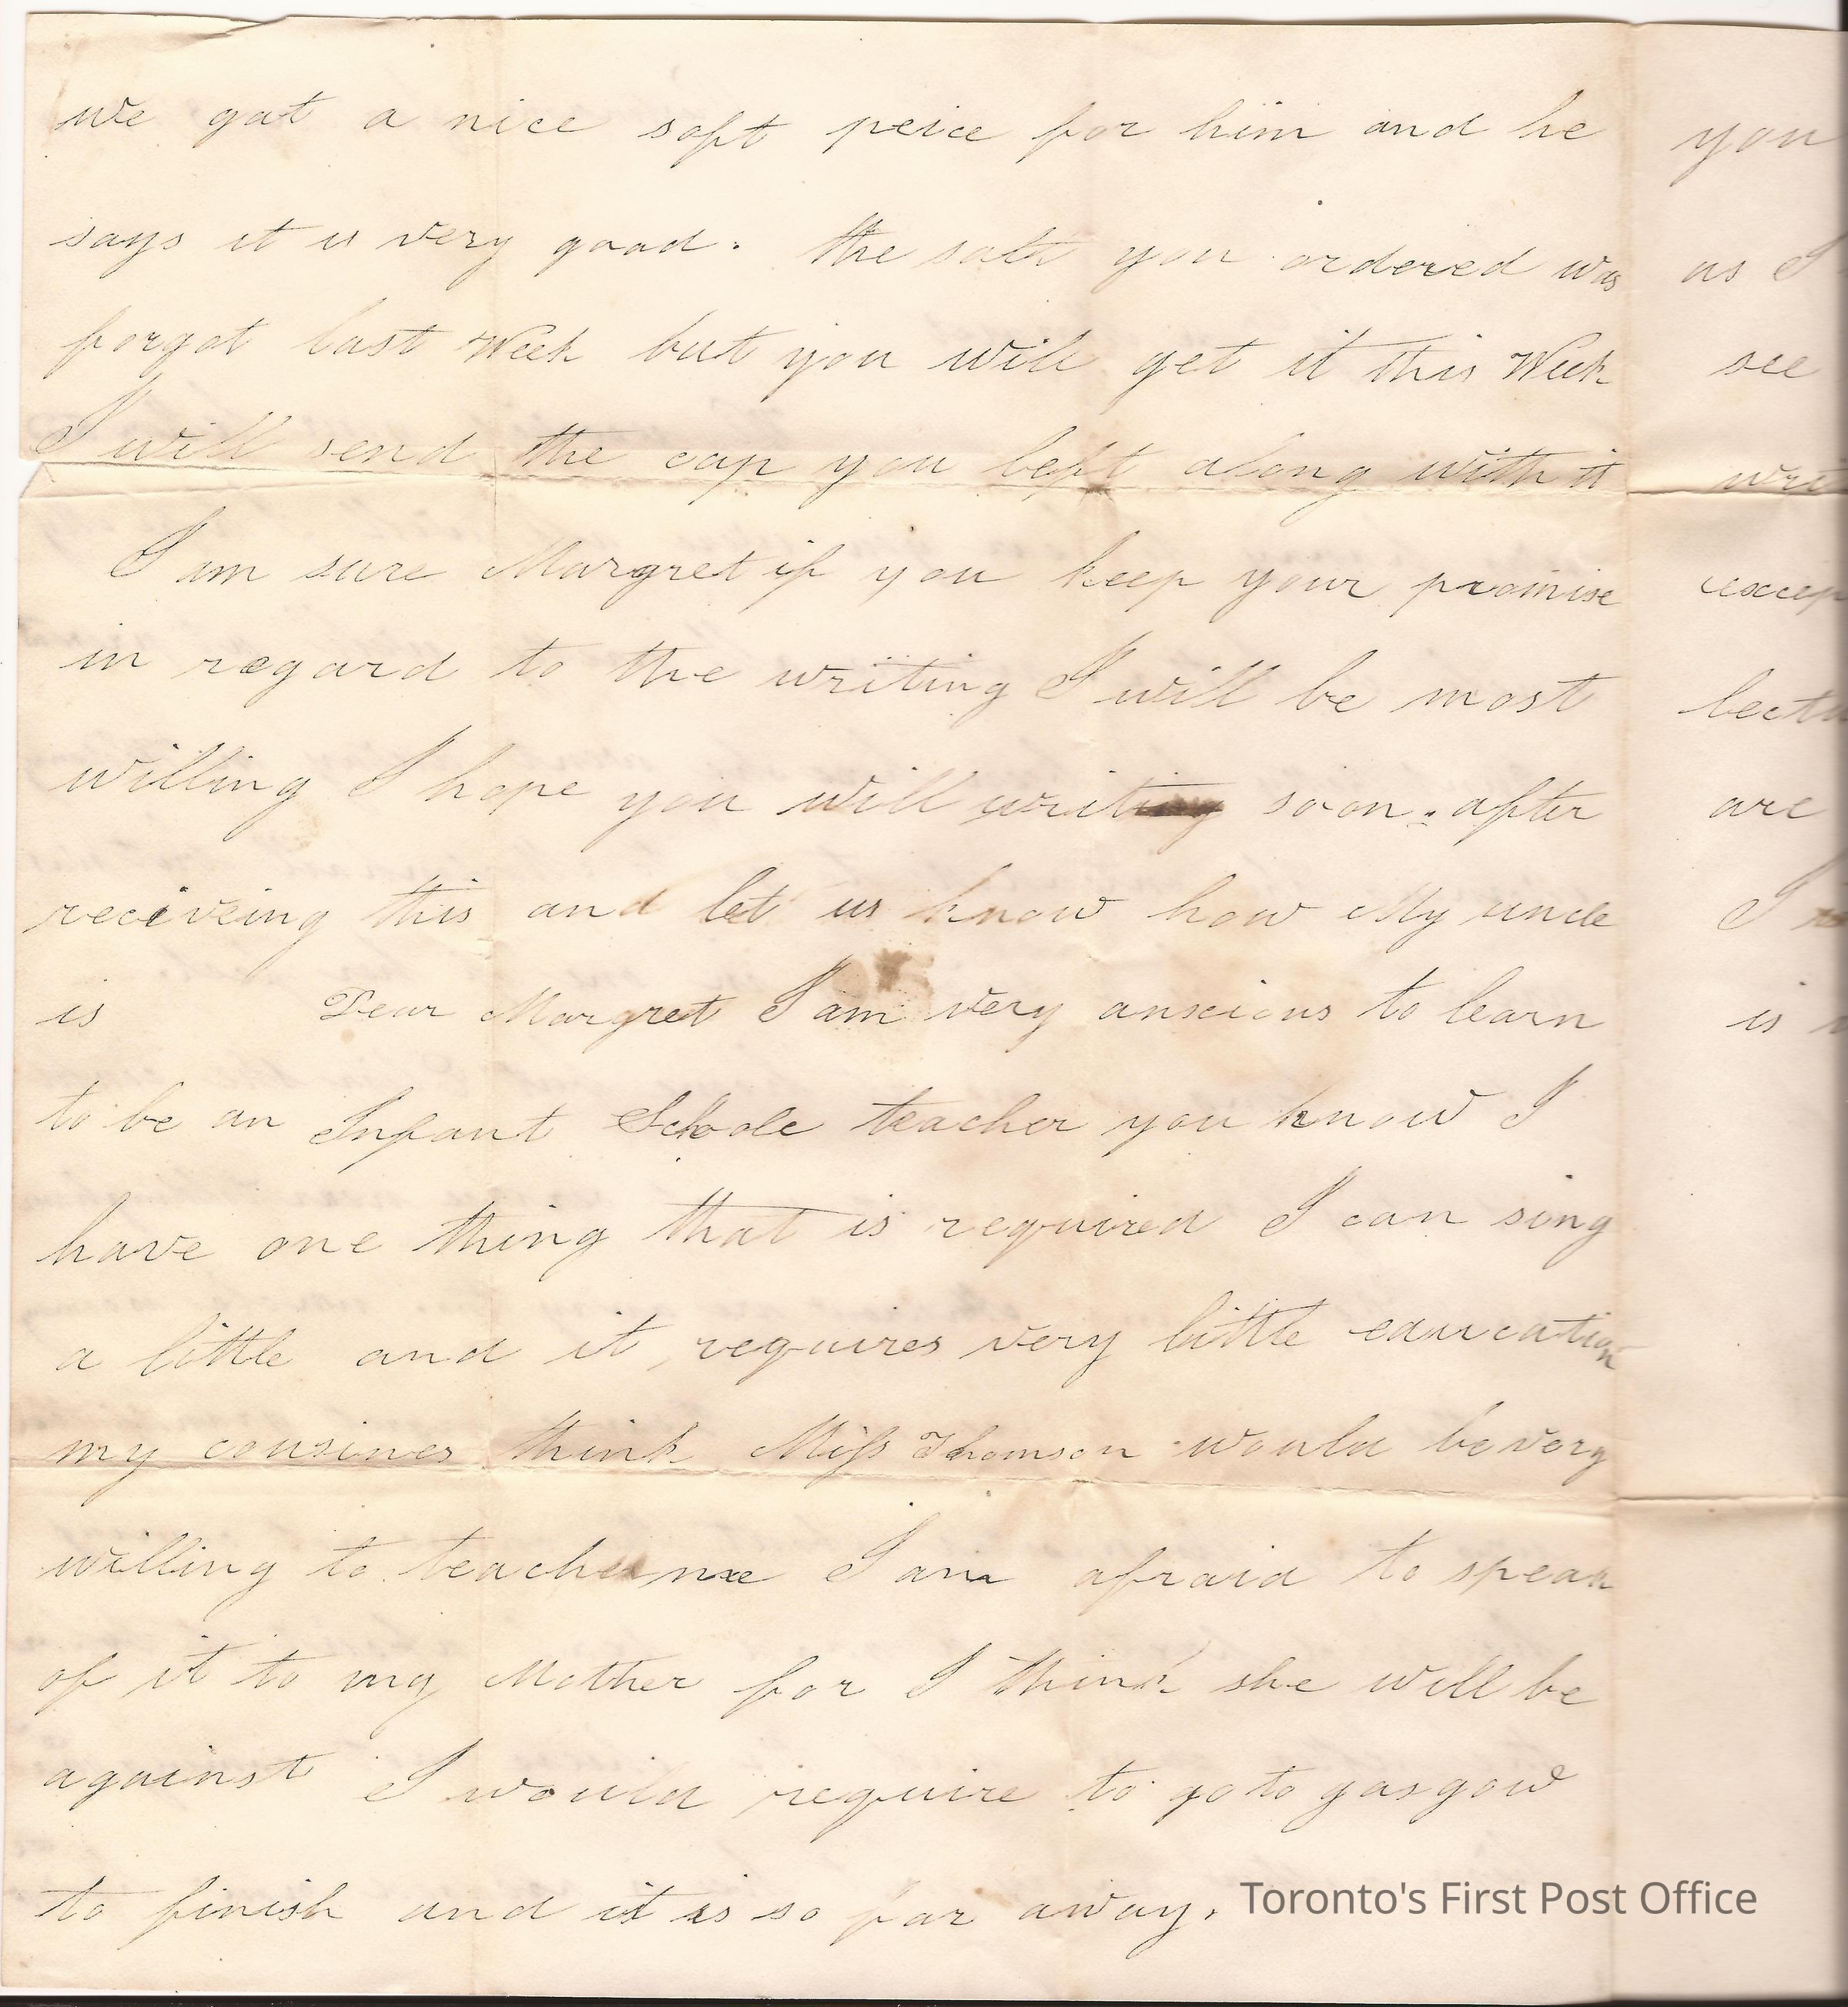 we got a nice soft peice for him and he
says it is very good. the salt you ordered was
forgot last Week but you will get it this Week
I will send the cap you left along with it
I am sure Margret if you keep your promise
in regard to the writing I will be most
willing I hope you will writing soon after
receiveing this and let us know how My uncle
is Dear Margret I am very anscious to learn
to be an Infant Schoole teacher you know I
have one thing that is required I can sing
a little and it requires very little education
my cousines think Miss Thomson would be very
willing to teach me I am afraid to speak
of it to my Mother for I think she will be
against I would require to go to gasgow
to finish and it is so far away.
you
as I
see
are
I
is
Toronto's First Post Office